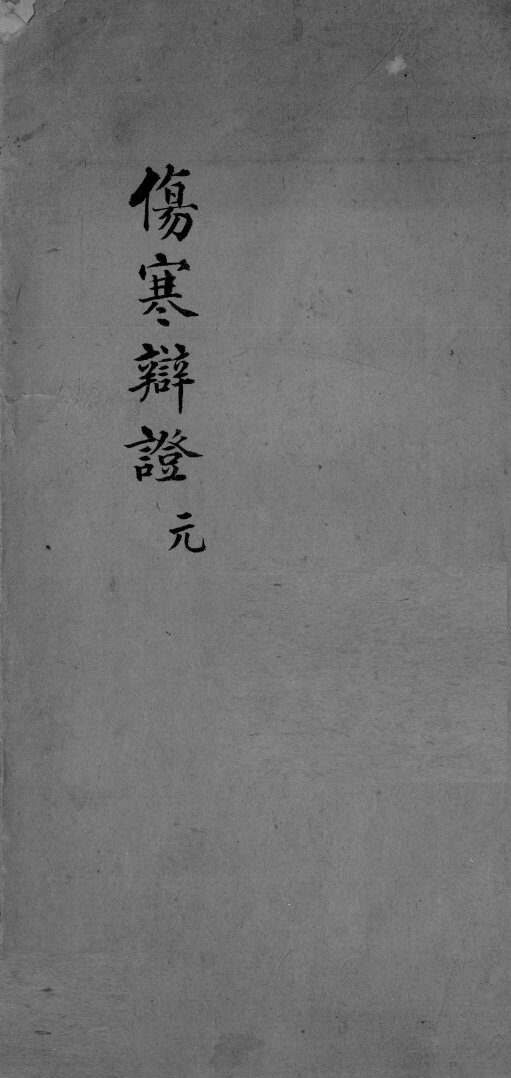 傷寒辯證
元